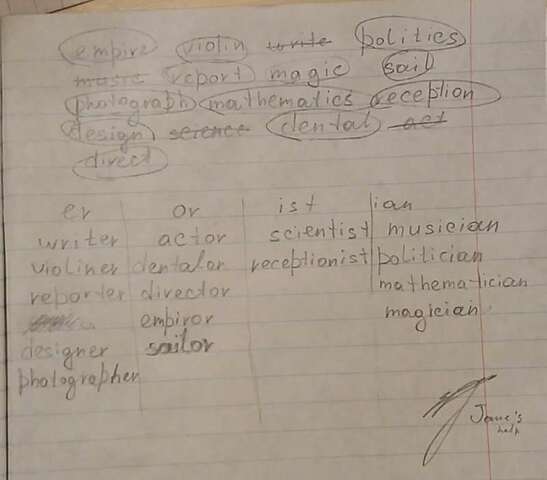 empire violin write politics
music report magic sail
photograph mathematics reception
design science dental act
direct
er or ist ian
writer actor scientist musician
violiner dentalor receptionist politician
reporter director mathematician
empiror magician
designer sailor
photographer
Jane's
help